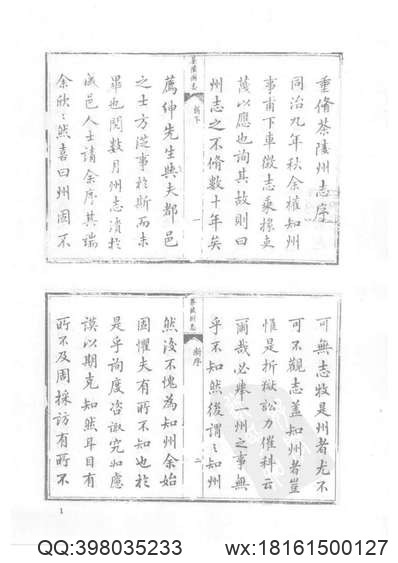 重脩茶陵州志序
同治九年秋余權知州
事甫下車徵志乘掾吏
茂以應也詢其故則曰
州志之不脩數十年矣
茶陵州志
新序
一
薦紳先生與夫都邑
之士方從事於斯而未
畢也閱數月州志濆於
成邑人士請余序其端
余欣欣然喜曰州固不
可無志牧是州者尤不
可不觀志蓋知州者豈
惟是折獄訟力催科云
爾哉必舉一州之事無
乎不知然後謂之知州
茶陵州志
新序
二
然後不愧為知州余始
固懼夫有所不知也於
是乎詢度咨諏究如慮
謨以期克知然耳目有
所不及周採訪有所不
1
QQ:398035233
wx:18161500127